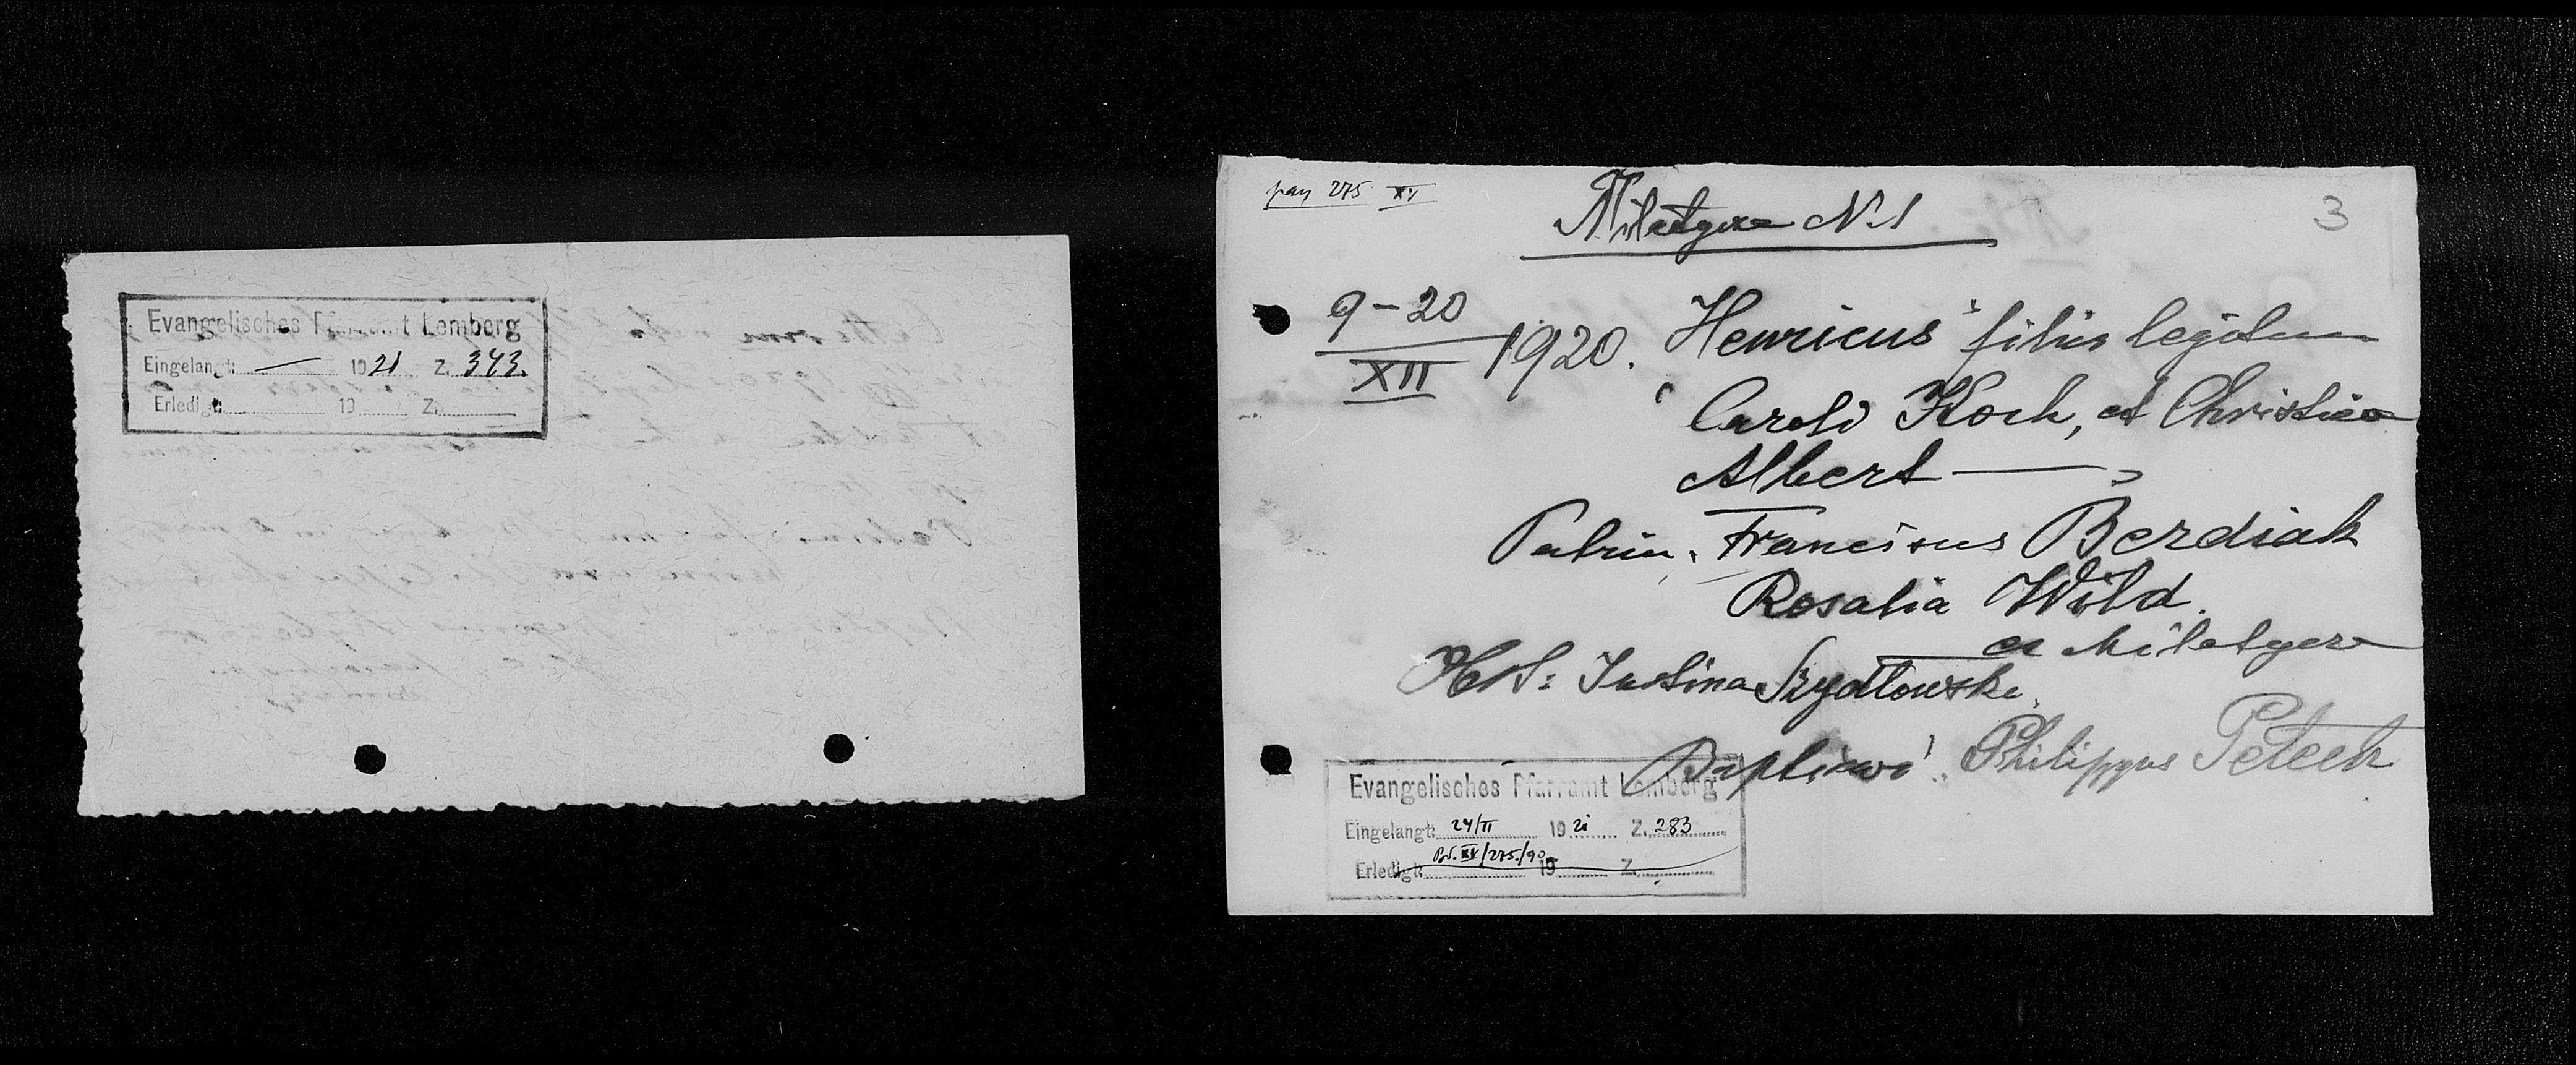 Evangelisches Pfarramt Lemberg
Eingelangt: — 1921 Z. 343.
Erledigt: 19 Z.
pag 275 XV
Miletycze N. 1
3
9-20
XII 1920. Henricus filius legitim
Caroli Koch, et Christina
Albert
Patrin. Franciscus Berdiak
Rosalia Wild.
ex Miletycze
Obst: Justina Szydłowska
Baptizavi Philippus Peteck
Evangelisches Pfarramt Lemberg
Eingelangt: 24/II 1921 Z. 283
Erledigt: XV/275/90 19 Z.